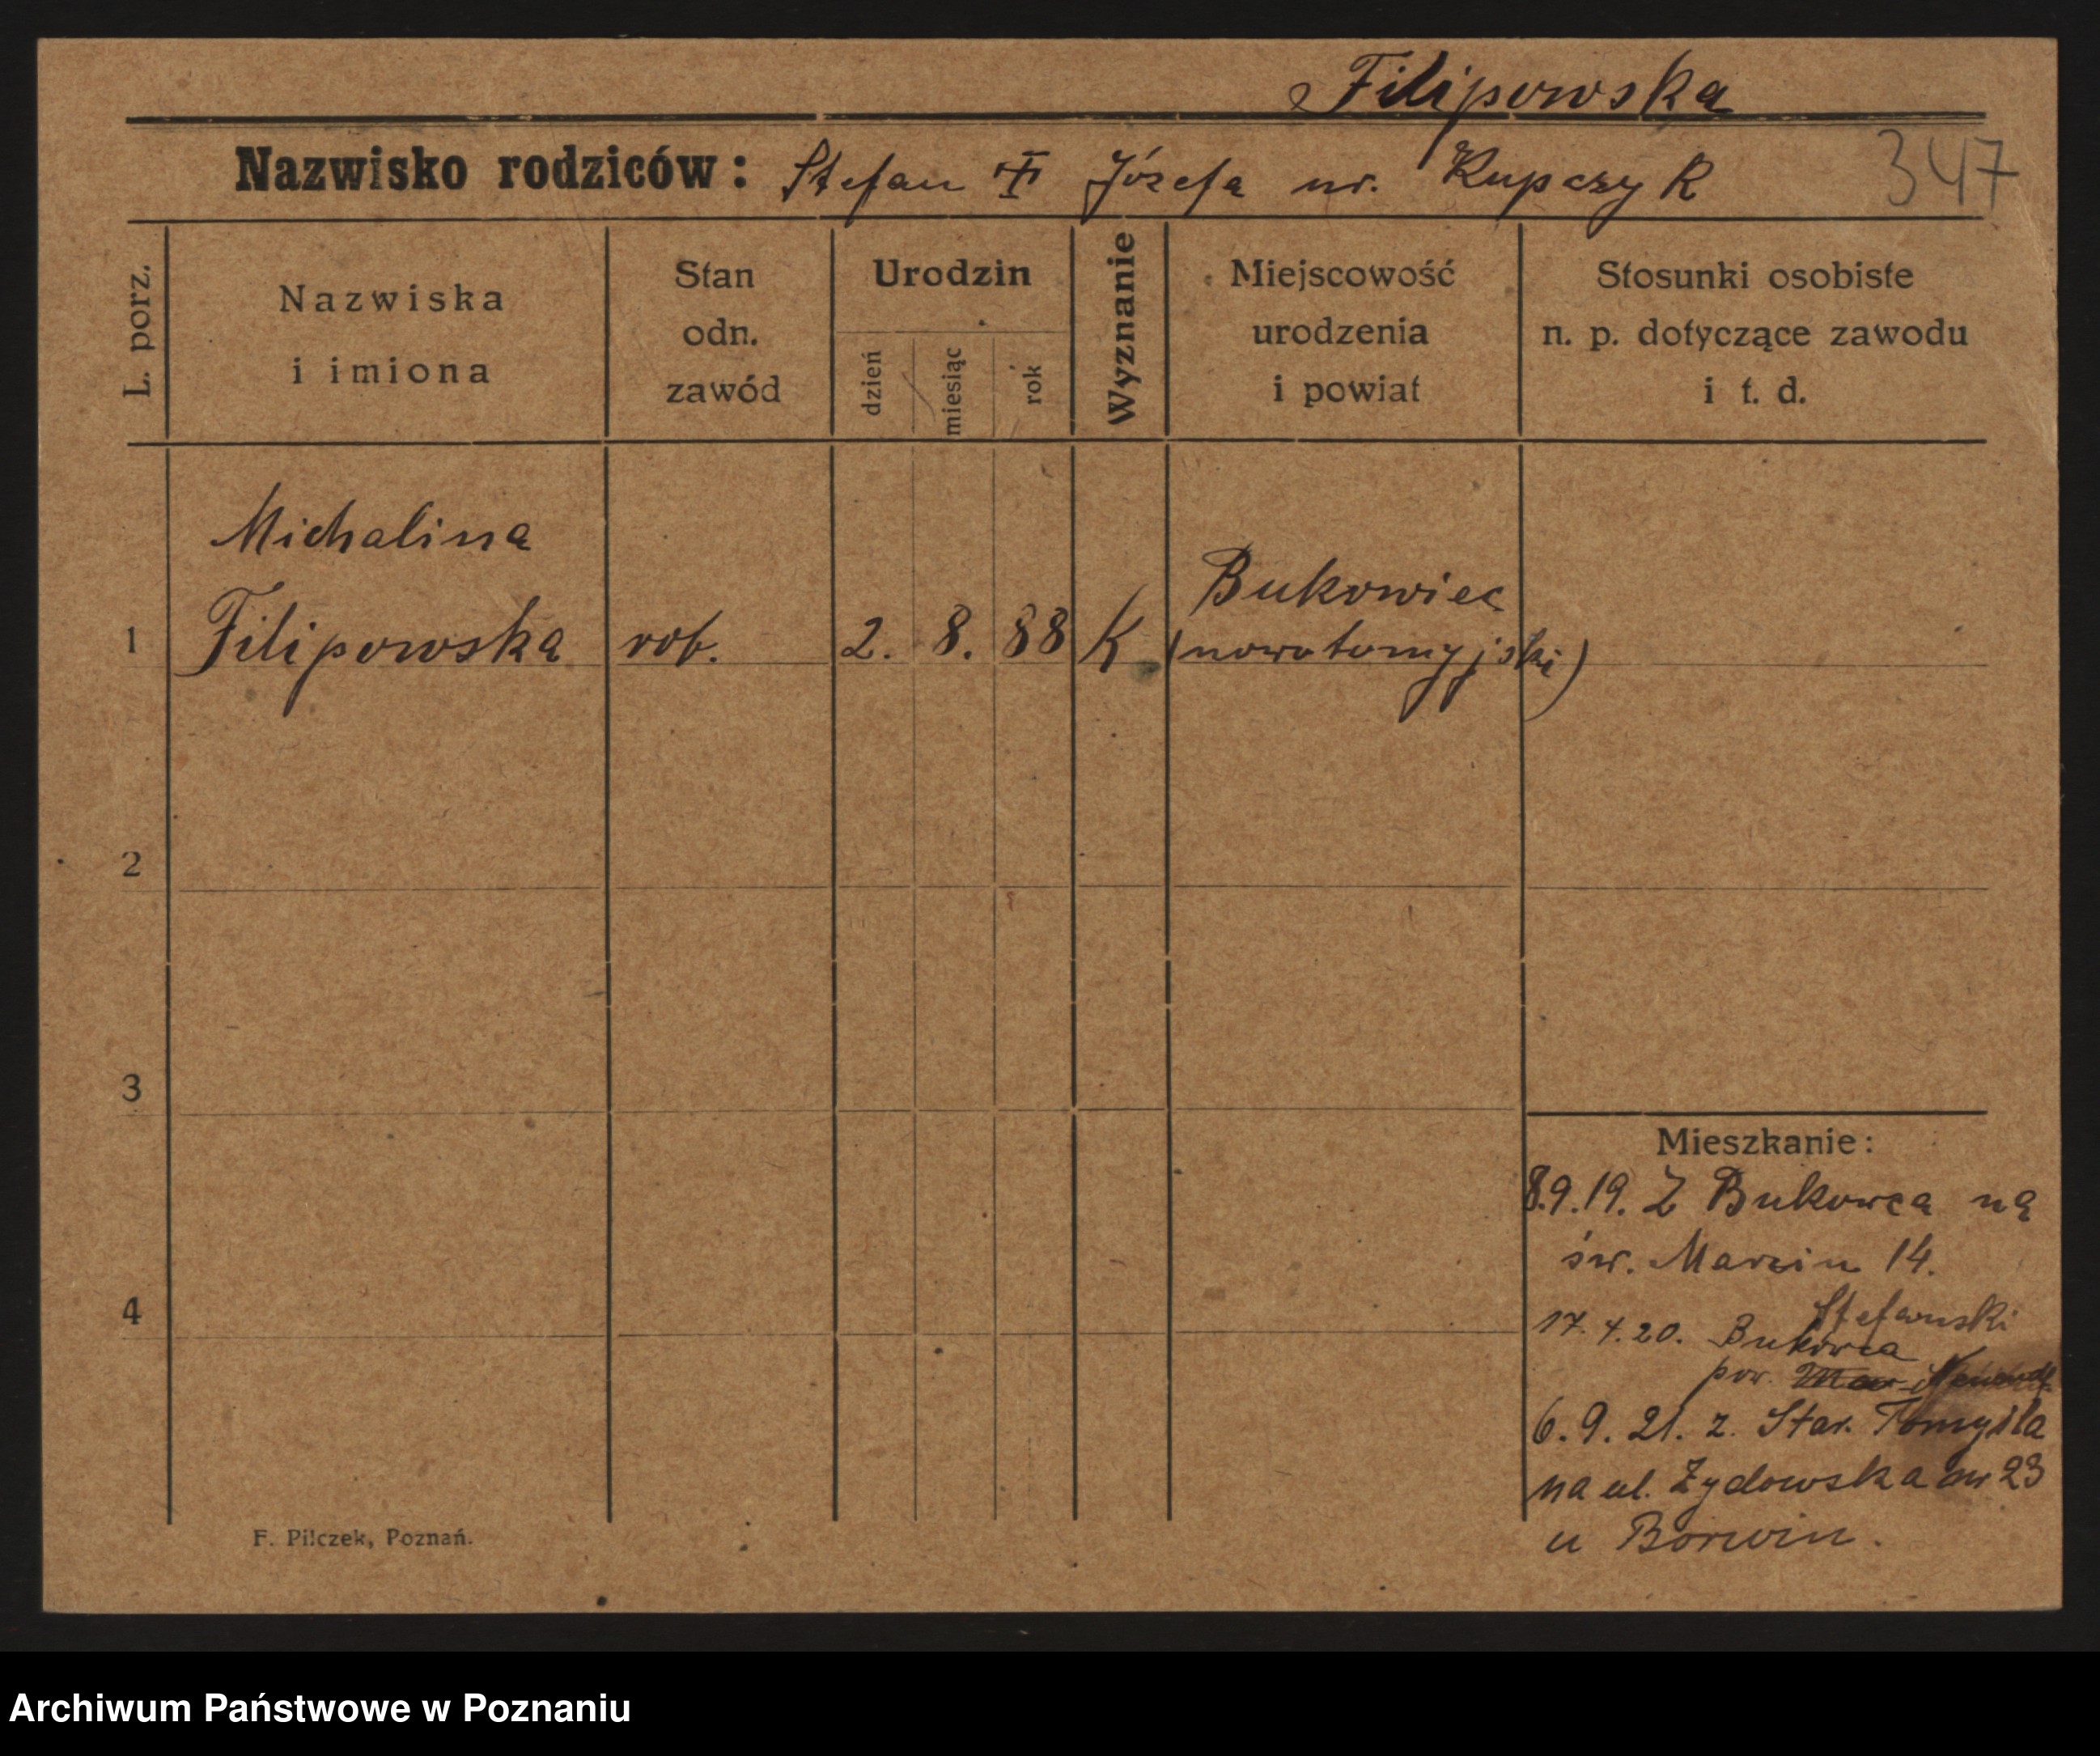 Filipowska
Nazwisko rodziców: Stefan Józefa ur. Kupczyk 347
L. porz.
Nazwiska
i imiona
Stan
odn.
zawód
Urodzin
dzień
miesiąc
rok
Wyznanie
Miejscowość
urodzenia
i powiat
Stosunki osobiste
n. p. dotyczące zawodu
i t. d.
Michalina
1 Filipowska rob. 2. 8. 88 K Bukowiec
(nowotomyjski)
2
3
4
Mieszkanie:
8.9.19. Z Bukowca na
św. Marcin 14.
Stefański
17.4.20. Bukowca
pow.
6.9.21. z. Star. Tomyśla
na ul. Żydowska nr 23
u Borwin.
F. Pilczek, Poznań.
Archiwum Państwowe w Poznaniu